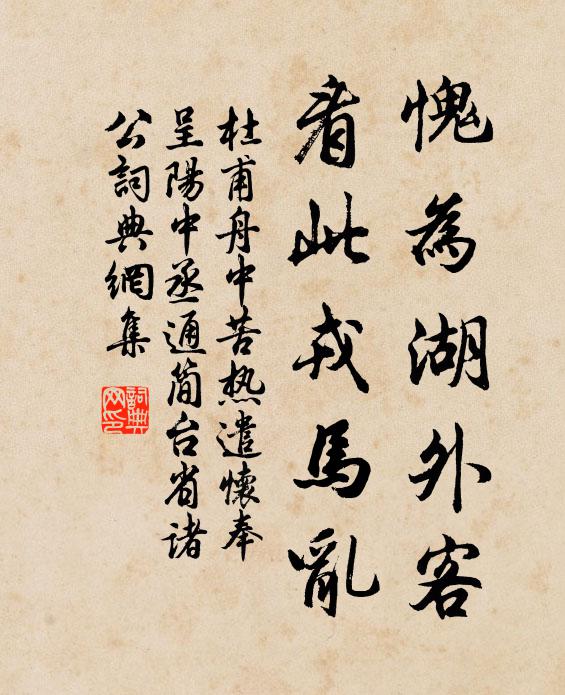 愧為湖外客
看此戎馬亂
杜甫舟中苦热遣懷奉
呈陽中丞通簡台省諸
公詞典網集
詞典
网印